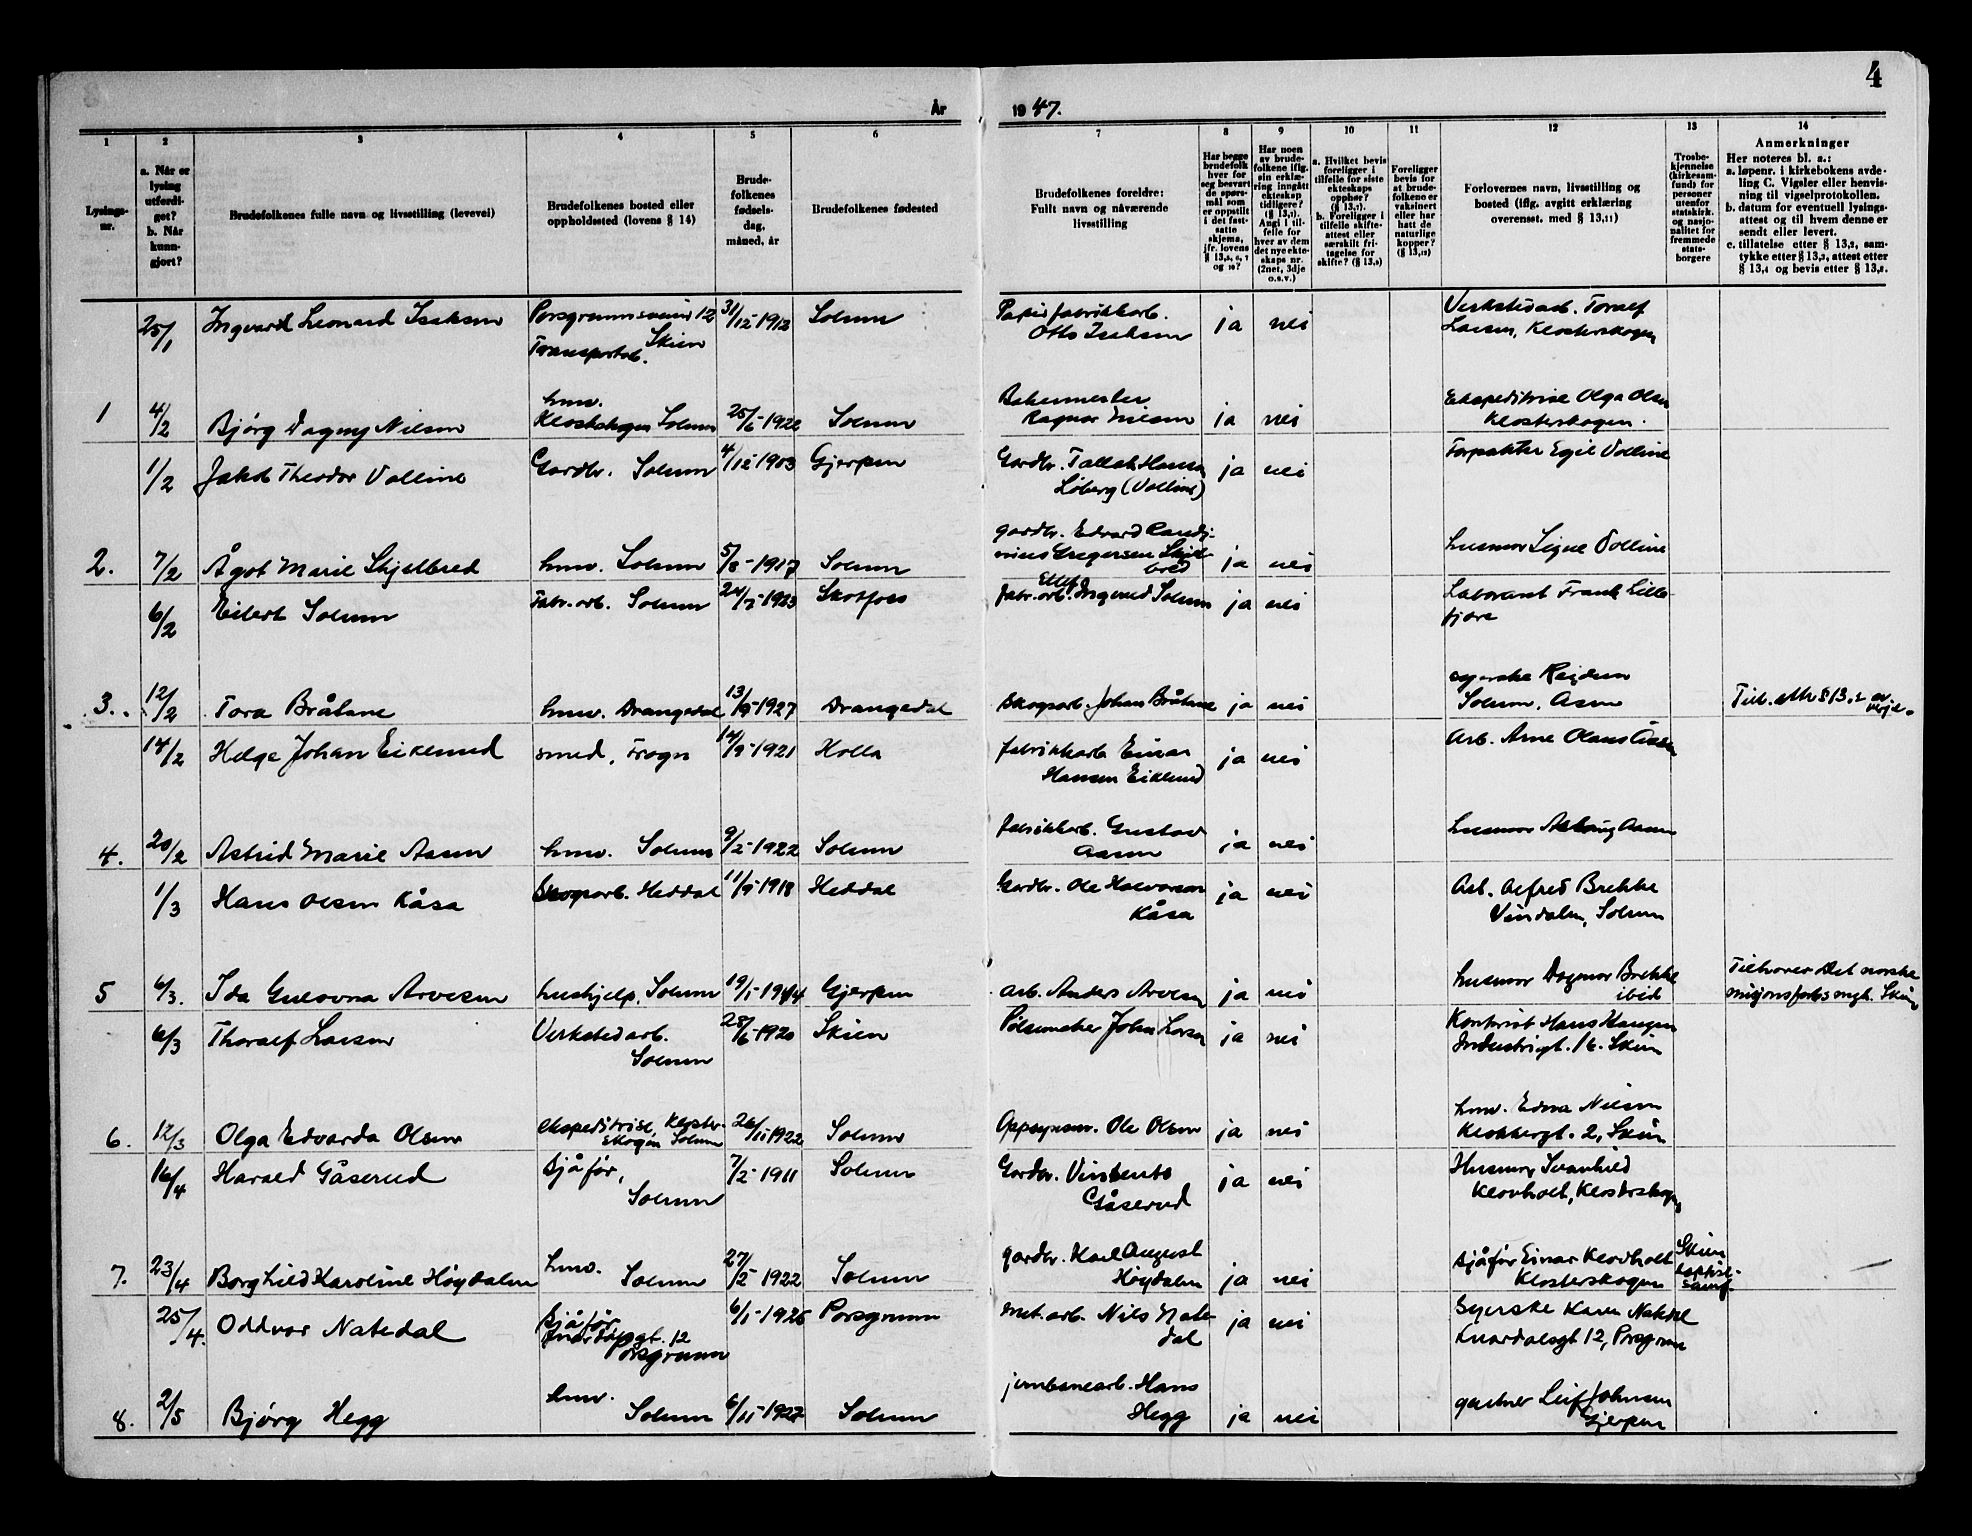 4
År
19 47.
1
2
3
4
5
6
7
8
9
10
11
12
13
14
Lysings-
nr.
a. Når er
lysing
utferdi-
get?
b. Når
kunn-
gjort?
Brudefolkenes fulle navn og livsstilling (levevei)
Brudefolkenes bosted eller
oppholdssted (lovens § 14)
Brude-
folkenes
fødsels-
dag,
måned, år
Brudefolkenes fødested
Brudefolkenes foreldre:
Fullt navn og nåværende
livsstilling
Har begge
brudefolk
hver for
seg besvart
de spørs-
mål som
er oppstilt
i det fast-
satte
skjema,
jfr. lovens
Har noen
av brude-
folkene iflg.
sin erklæ-
ring inngått
ekteskap
tidligere?
(§ 13,1).
Angi i til-
felle for
hver av dem
det nye ekte-
skaps nr.
(2net, 3dje
o.s.v.)
a. Hvilket bevis
foreligger i
tilfelle for siste
ekteskaps
opphør?
(§ 13,7).
b. Foreligger i
tilfelle skifte-
attest eller
særskilt fri-
tagelse for
skifte? (§ 13,8)
Foreligger
bevis for
at brude-
folkene er
vaksinert
eller har
hatt de
naturlige
kopper?
Forlovernes navn, livsstilling og
bosted (iflg. avgitt erklæring
overensst. med § 13,11)
Trosbe-
kjennelse
(kirkesam-
fund) for
personer
utenfor
statskirk.
og nasjo-
nalitet for
fremmede
stats-
borgere
Anmerkninger
Her noteres bl. a.:
a. løpenr. i kirkebokens avde-
ling C. Vigsler eller henvis-
ning til vigselprotokollen.
b. datum for eventuell lysings-
attest og til hvem denne er
sendt eller levert.
c. tillatelse etter § 13,2, sam-
tykke etter § 13,3, attest etter
§ 13,4 og bevis etter § 13,8.
25/1 Ingvard Leonard Isaksen Skien Transportarb. 31/12-1912 Solum
Otto Isaksen ja nei Verkstedarb. Toralf
Larsen, Klosterskogen
1 4/2 Bjørg Dagny Nilsen hmv. Klosterskogen Solum 25/6-1922 Solum
Bakermester
Ragnar Nilsen ja nei Ekspeditrise Olga Olsen
Klosterskogen.
1/2 Jakob Theodor Volline Gardbr. Solum 4/12-1903 Gjerpen
Gardbr. Tallak Hansen
Løberg (Volline) ja nei Forpakter Egil Volline
2. 7/2 Ågot Marie Skjelbred hmv. Solum 5/8-1917 Solum
gardbr. Edvard
Gregersen Skjel-
bred ja nei husmor Signe Volline
6/2 Eilert Solum Fabr.arb. Solum Skotfoss
fabr.arb. Ingvard Solum ja nei Laborant Frank Lille-
fjære
3. 12/2 Tora Bråtane hmv. Drangedal 13/9-1927 Drangedal
Skogsarb. Johan Bråtane ja nei syerske Reidun
Solum, Åsen
Till. etter § 13,2 av
verje.
14/2 Helge Johan Eikelund smed, Frogn 14/9-1921 Holla
fabrikkarb. Einar
Hansen Eiklund ja nei Arb. Arne Olaus Åsen
4. 20/2 Astrid Marie Aasen hmv. Solum 9/2-1922 Solum
fabrikkarb. Gustav
Aasen ja nei husmor Aslaug Aasen
1/3 Hans Olsen Kåsa Skogsarb. Heddal 11/9-1918 Heddal
Gardbr. Ole Halvorsen
Kåsa ja nei Arb. Alfred Brekke
Vindalen, Solum
5 6/3. Ida Gulovna Arvesen hushjelp, Solum Gjerpen
arb. Anders Arvesen ja nei husmor Dagmar Brekke
ibid
Tilhører Det norske
misjonsforb. Skien
6/3 Thoralf Larsen Verkstedarb.
Solum 28/6-1920 Skien
Pølsemaker John Larsen ja nei Kontorist Hans Haugen
Industrigt. 16. Skien
6. 12/3 Olga Edvarda Olsen ekspeditrise, Kloster-
skogen Solum 26/11-1922 Solum
Oppsynsm. Ole Olsen ja nei hmv. Edna Nilsen
Klokkergt. 2, Skien
16/4 Harald Gåserud Sjåfør,
Solum 7/2-1911 Solum
Gardbr. Vinsents
Gåserud ja nei Husmor Svanhild
Klovholt, Klosterskogen
7. 23/4 Borghild Karoline Høydalen hmv.
Solum 27/2-1922 Solum
gardbr. Karl August
Høydalen ja nei sjåfør Einar Klovholt
Klosterskogen
Skien
baptist-
samf.
25/4. Oddvar Natedal Sjåfør
Knardalsgt. 12
Porsgrunn 6/1-1926 Porsgrunn
met.arb. Nils Nate-
dal ja nei Syerske Karen Natedal
Knardalsgt 12, Porsgrunn
8. 2/5 Bjørg Hegg hmv.
Solum 6/11-1927 Solum
jernbanearb. Hans
Hegg ja nei gartner Leif Johnsen
Gjerpen